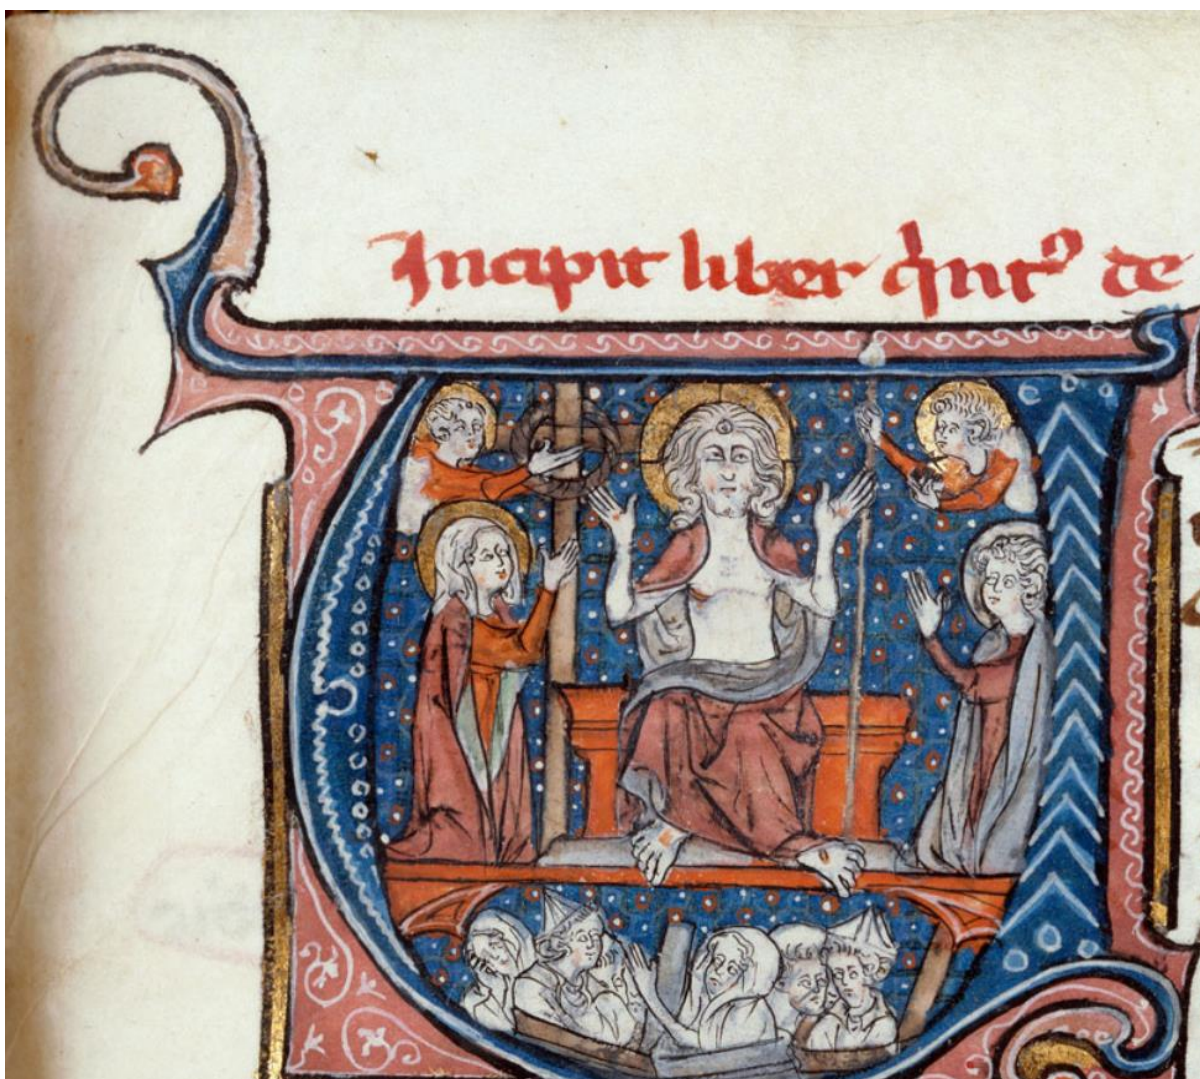 Incipit liber qͥntꝰ de